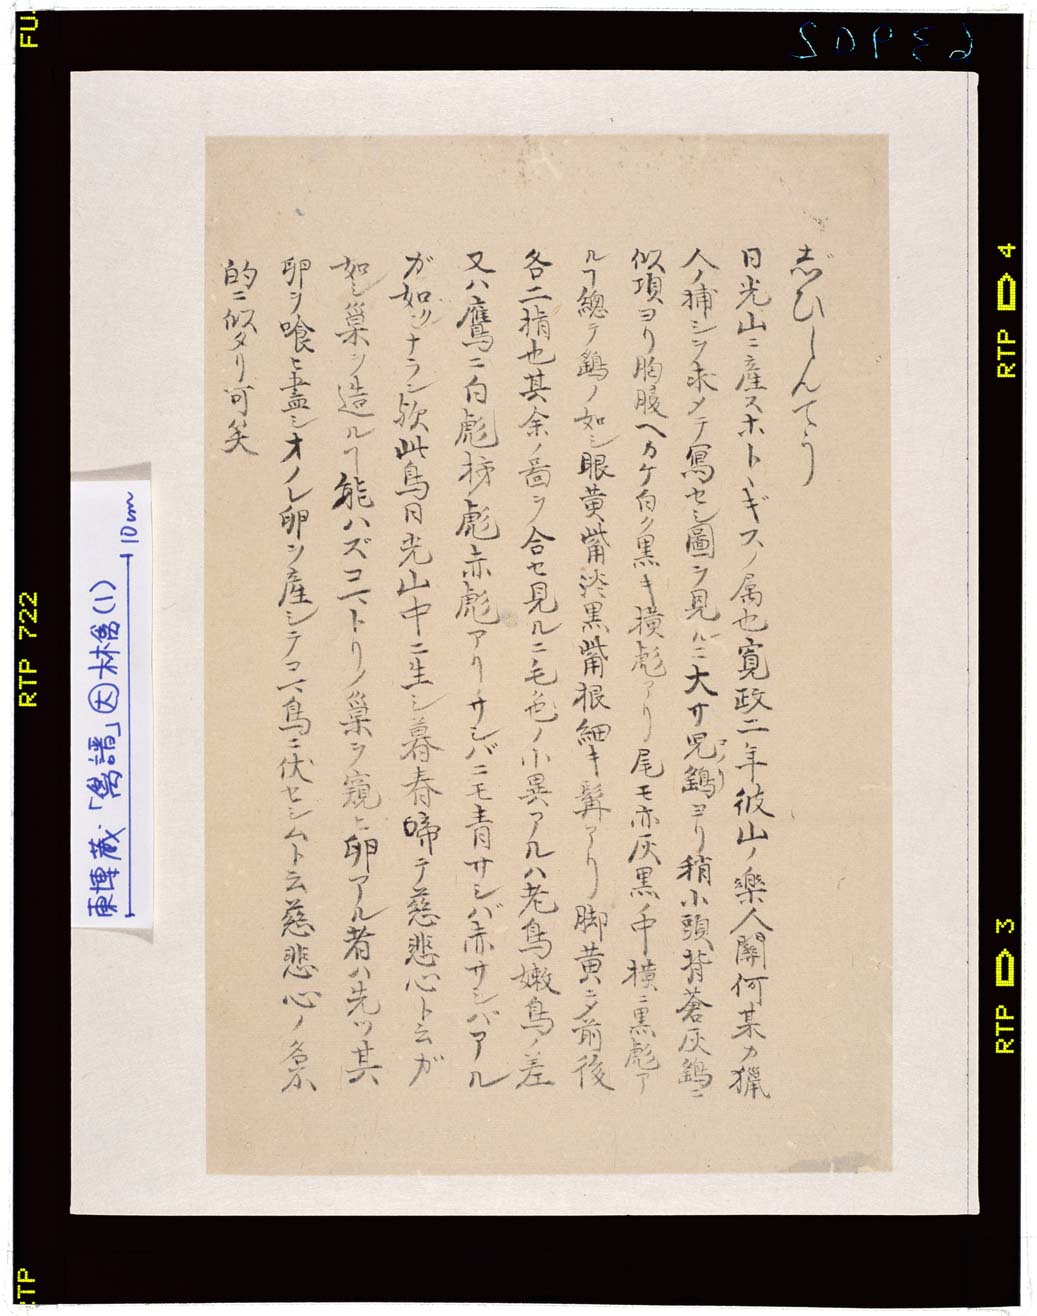 じひしんてう
日光山ニ産スホトヽギスノ属也寛政二年彼山ノ樂人關何某カ猟
人ノ捕シヲ求メテ冩セシ圖ヲ見ルニ大サ児鷂コノリヨリ稍小頭背蒼灰鷂ニ
似項ヨリ胸腹ヘカケ白ク黒キ横彪アリ尾モ亦灰黒ノ中横ニ黒彪ア
ルヿ總テ鷂ノ如シ眼黄觜淡黒觜根細キ髯アリ脚黄ニ〆前後
各二指也其余ノ啚ヲ合セ見ルニ毛色ノ小異アルハ老鳥嫩鳥ノ差
又ハ鷹ニ白彪 彪赤彪アリサシバニモ青サシバ赤サシバアル
ガ如ツナラン欤此鳥日光山中ニ生シ暮春啼テ慈悲心ト云ガ
如シ巣ヲ造ルヿ能ハズコマトリノ巣ヲ窺ヒ卵アル者ハ先ツ其
卵ヲ喰ヒ盡シオノレ卵ヲ産シテコマ鳥ニ伏セシムト云慈悲心ノ名不
的ニ似タリ可笑
東博蔵・「禽譜」 林禽(1)
10cm
63902
RTP 722
RTP 4
RTP 3